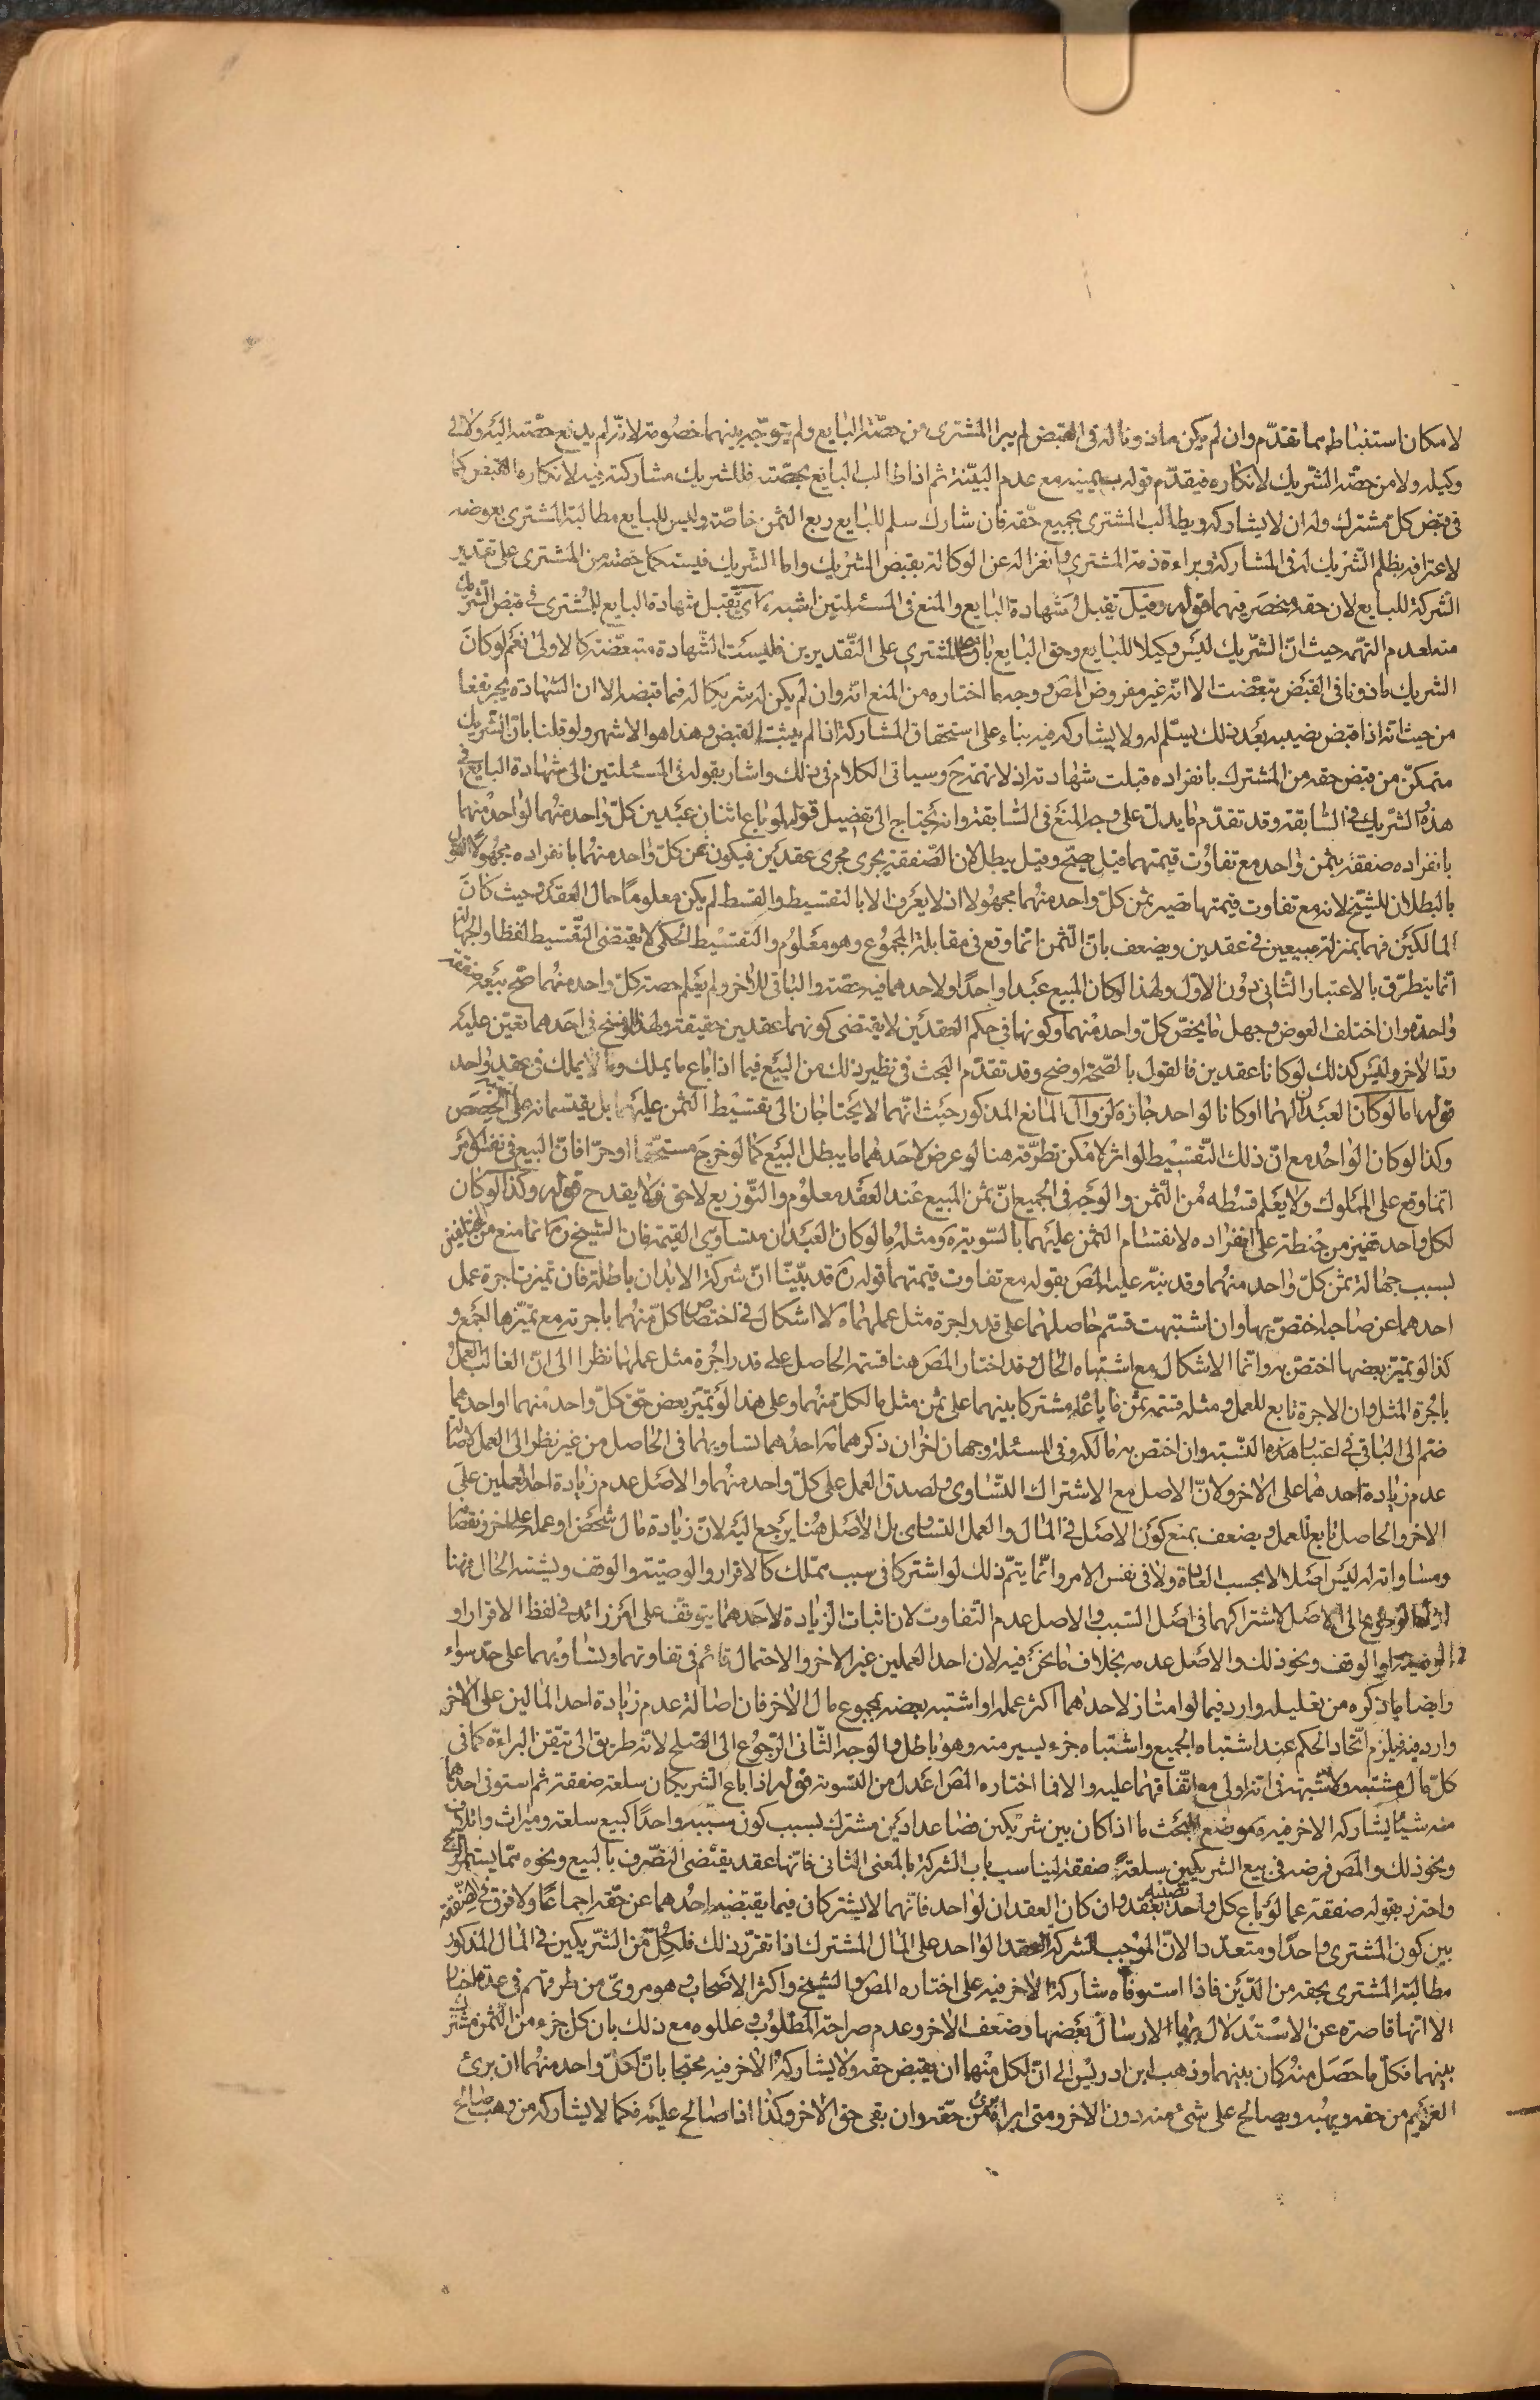 لامكان استنباطه مما تقدّم وان لم يكن ماذونا له فى القبض لم يبرا المشترى من حصّة البايع ولم يتوجّه بينهما خصومة لانّه لم يدفع حصّته اليه ولا الى
وكيله ولا من حصّة الشّريك لانكاره فيقدّم قوله بيمينه مع عدم البيّنة ثم اذا طالب البايع بحصّته فللشريك مشاركته فيه لانكاره القبض كما
فى قبض كلّ مشترك وله ان لا يشاركه ويطالب المشترى بجميع حقّه فان شارك سلم للبايع ربع الثمن خاصّة وليس للبايع مطالبة المشترى بعوضه
لاعترافه بظلم الشّريك له فى المشاركة وبراءة ذمة المشترى وانعزاله عن الوكالة بقبض الشريك واما الشّريك فيستكمل حصّته من المشترى على تقدير
الشركة للبايع لان حقه منحصر فيهما قوله وقيل تقبل شهادة البايع والمنع فى المسئلتين اشبه اى تقبل شهادة البايع للمشترى فى قبض الشريك
منه لعدم التهمة حيث انّ الشّريك ليس وكيلا للبايع وحق البايع باق على المشترى على التّقديرين فليست الشّهادة متبعّضة كالاولى نعم لو كان
الشريك ماذونا فى القبض تبعّضت الا انّه غير مفروض المصَ ووجه ما اختاره من المنع انّه وان لم يكن له شريكا له فيما قبضه الا ان الشهادة يجر نفعا
من حيث انّه اذا قبض نصيبه بعد ذلك يسلّم له ولا يشاركه فيه بناء على استحقاق المشاركة اذا لم يثبت القبض وهذا هو الاشهر ولو قلنا بانّ الشّريك
متمكّن من قبض حقه من المشترك بانفراده قبلت شهادته اذ لا تهمة حَ وسياتى الكلام فى ذلك واشار بقوله فى المسئلتين الى شهادة البايع فى
هذه والشّريك فى السّابقة وقد تقدّم ما يدلّ على وجه المنع فى السّابقة وانه يحتاج الى تفصيل قوله لو باع اثنان عبدين كلّ واحد منهما لواحد منهما
بانفراده صفقة بثمن واحد مع تفاوت قيمتهما قيل يصحّ وقيل يبطل لان الصّفقة يجرى مجرى عقدين فيكون ثمن كلّ واحد منهما بانفراده مجهولا القول
بالبطلان للشّيخ لانه مع تفاوت قيمتها تصير ثمن كلّ واحد منهما مجهولا اذ لا يعرف الا بالتقسيط والقسط لم يكن معلوما حال العقد وحيث كان
المالكين فهما بمنزلة مبيعين فى عقدين ويضعف بانّ الثّمن انّما وقع فى مقابلة المجموع وهو معلوم والتّقسيط الحكمى لا يقتضى التّقسيط لفظا والجهالة
انّما يتطرّق بالاعتبار الثّانى دون الاول ولهذا لو كان المبيع عبدا واحدًا ولاحدهما فيه حصّة والباقى للاخر ولم يعلم حصة كلّ واحد منهما صحّ بيعه صفقة
واحدة وان اختلف العوض وجهل ما يخصّ كلّ واحد منهما وكونها فى حكم العقدين لا يقتضى كونهما عقدين حقيقة ولهذا لو فسخ فى احدهما تعيّن عليه
رد الاخر وليس كذلك لو كانا عقدين فالقول بالصّحة اوضح وقد تقدّم البحث فى نظير ذلك من البيع فيما اذا باع ما يملك وما لا يملك فى عقد واحد
قوله اما لو كان العبدان لهما او كانا لواحد جاز ه لزوال المانع المذكور حيث انّهما لا يحتاجان الى تقسيط الثمن عليهما بل يقتسمانه على الحصص
وكذا لو كان الواحد مع انّ ذلك التّقسيط لو اثر لامكن تطرّقه هنا لو عرض لاحدهما ما يبطل البيع كما لو خرج مستحقّا او حرّا فانّ البيع فى نفس الامر
انّما وقع على المملوك ولا يعلم قسطه من الثّمن والوجه فى الجميع انّ ثمن المبيع عند العقد معلوم والتّوزيع لاحق فلا يقدح قوله وكذا لو كان
لكل واحد قفيز من حنطة على انفراده لانقسام الثمن عليهما بالسّوية ه ومثله ما لو كان العبدان متساوى القيمة فان الشيخ ره انما منع من المختلفين
لسبب جهالة ثمن كلّ واحد منهما وقد نبّه عليه المصَ بقوله مع تفاوت قيمتهما قوله ره قد بيّنّا انّ شركة الابدان باطلة فان تميزت اجرة عمل
احدهما عن صاحبه اختصّ بها وان اشتبهت قسّم حاصلهما على قدر اجرة مثل عملهما ه لا اشكال فى اختصاص كلّ منهما باجرته مع تميّزها الجمع و
كذا لو تميّز بعضها اختصّ به وانّما الاشكال مع اشتباه الحال وقد اختار المصَ هنا قسمة الحاصل على قدر اجرة مثل عملهما نظرا الى انّ الغالب العمل
باجرة المثل وان الاجرة تابع للعمل ومثله قسمة ثمن ما باعاه مشتركا بينهما على ثمن مثل ما لكلّ منهما وعلى هذا لو تميّز بعض حقّ كلّ واحد منهما او احدهما
ضمّ الى الباقى فى اعتبار هذه النّسبة وان اختص به مالكه وفى المسئلة وجهان اخران ذكرهما ه احدهما تساويهما فى الحاصل من غير نظر الى العمل لاصالة
عدم زيادة احدهما على الاخر ولانّ الاصل مع الاشتراك التّساوى ولصدق العمل على كلّ واحد منهما والاصل عدم زيادة احد العملين على
الاخر والحاصل تابع للعمل ويضعف بمنع كون الاصل فى المال والعمل التّساوى بل الاصل هنا يرجع اليه لانّ زيادة مال شخص او عمله على اخر ونقصا
ومساواته له ليس اصلا لا بحسب العادة ولا فى نفس الامر وانّما يتمّ ذلك لو اشتركا فى سبب مملّك كالاقرار والوصيّة والوقف ويشتبه الحال فهنا
الرّجوع الى الاصل لاشتراكهما فى اصل السّبب والاصل عدم التّفاوت لان اثبات الزيادة لاحدهما يتوقّف على امر زائد فى لفظ الاقرار او
الوصيّة او الوقف ونحو ذلك والاصل عدمه بخلاف ما نحن فيه لان احد العملين غير الاخر والاحتمال قائم فى تفاوتهما وتساويهما على حدّ سواء
وايضا ما ذكره من تعليله وارد فيما لو امتاز لاحدهما اكثر عمله او اشتبه بعضه بمجموع مال الاخر فان اصالة عدم زيادة احد المالين على الاخر
وارد فيه فيلزم اتّحاد الحكم عند اشتباه الجميع واشتباه جزء يسير منه وهو باطل والوجه الثّانى الرّجوع الى الصّلح لانّه طريق الى تيقّن البراءة كما فى
كلّ مال مشتبه ولا شبهة فى انّه اولى مع اتّفاقهما عليه والا فما اختاره المصَ اعدل من التّسوية قوله اذا باع الشريكان سلعة صفقة ثم استوفى احدهما
منه شيئا يشاركه الاخر فيه ه موضع البحث ما اذا كان بين شريكين فصاعدا دين مشترك بسبب كون سببه واحدًا كبيع سلعة وميراث واتلاف
ونحو ذلك والمصَ فرضه فى بيع الشريكين سلعة صفقة ليناسب باب الشركة بالمعنى الثانى فانّها عقد يقتضى التصّرف بالبيع ونحوه ممّا يستثمر الربح
واحترز بقوله صفقة عما لو باع كل واحد نصيبه بعقد وان كان العقدان لواحد فانّهما لا يشتركان فيما يقتضيه احدهما عن حقّه اجماعًا ولا فرق فى الصّفقة
بين كون المشترى واحدًا ومتعدّدا لانّ الموجب للشركة العقد الواحد على المال المشترك اذا تقرّر ذلك فلكلّ من الشّريكين فى المال المذكور
مطالبة المشترى بحقه من الدّين فاذا استوفاه شاركه الاخر فيه على اختاره المصَ والشيخ واكثر الاصحاب وهو مروىّ من طرقهم فى عدة اخبار
الا انّها قاصرة عن الاستدلال بها لارسال بعضها وضعف الاخر وعدم صراحة المطلوب وعللوه مع ذلك بان كل جزء من الثّمن مشترك
بينهما فكلّ ما حصل منه كان بينهما وذهب ابن ادريس الى انّ لكل منهما ان يقبض حقه ولا يشاركه الاخر فيه محتجا بانّ لكلّ واحد منهما ان يبرئ
الغريم من حقه ويهبه ويصالح على شئ منه دون الاخر ومتى ابراه برئ من حقّه وان بقى حق الاخر وكذا اذا صالح عليه فكما لا يشاركه من وهب وصالح